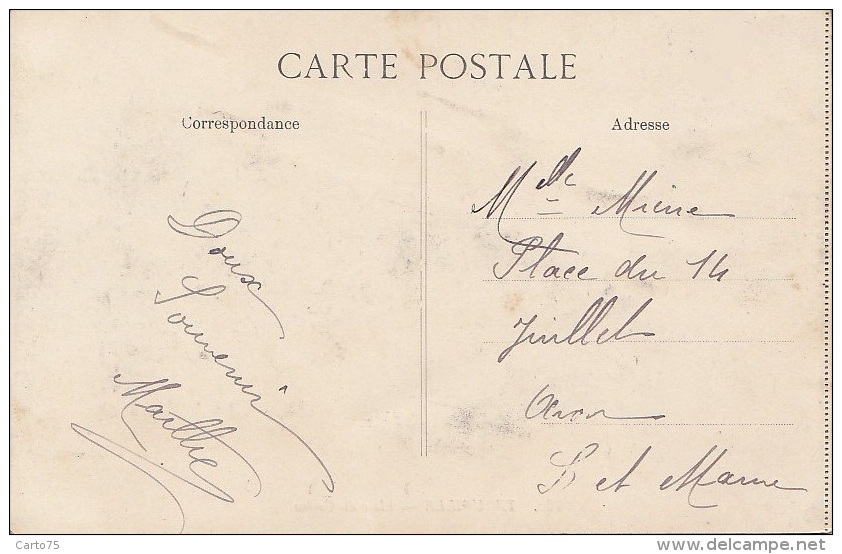 CARTE POSTALE
Correspondance
Adresse
Doux
Souvenir
Marthe
Mlle Miene
Place du 14
Juillet
Avon
S et Marne
Carto75
www.delcampe.net